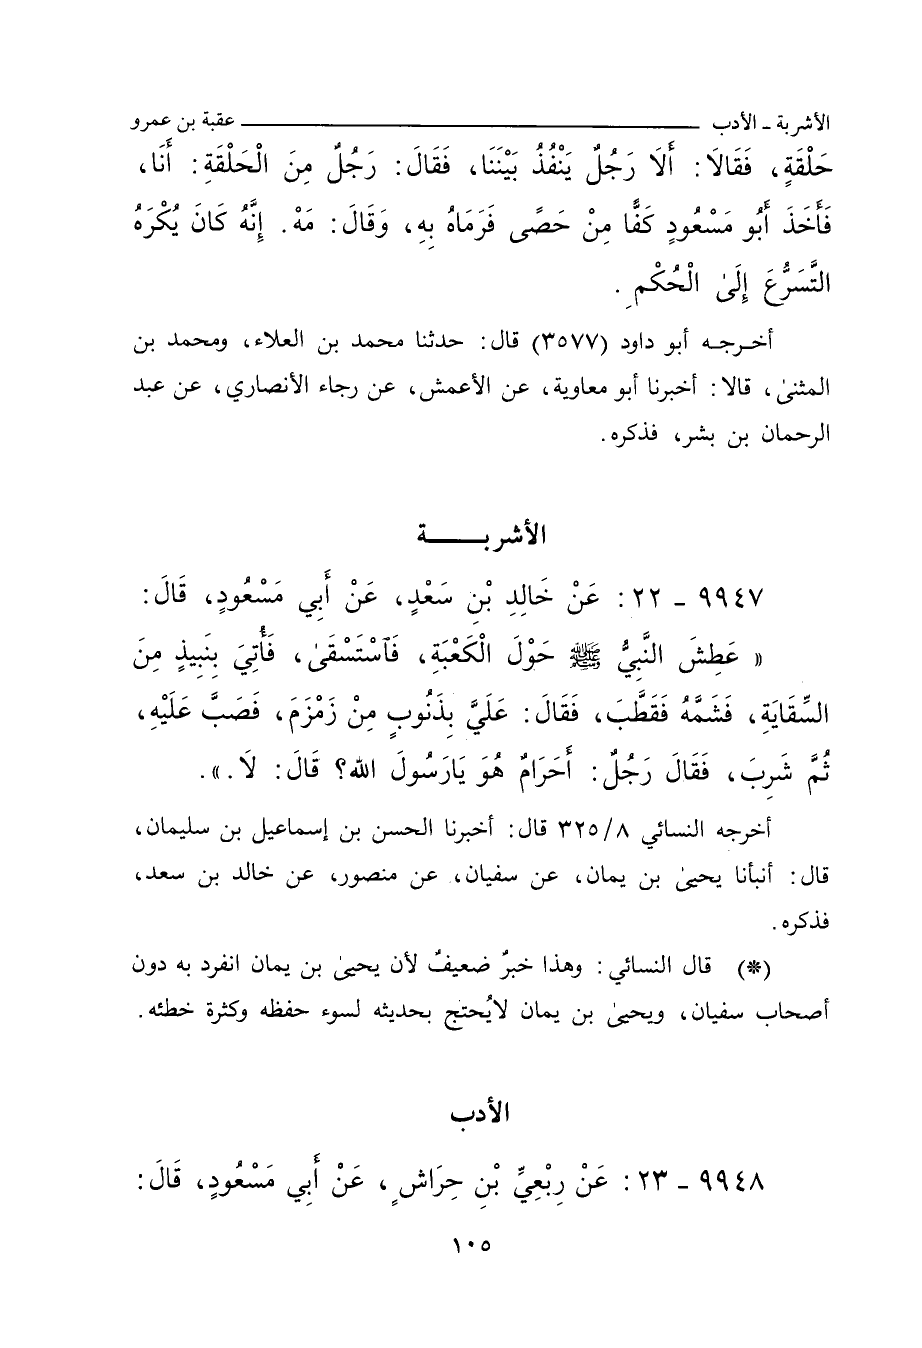 الأشربة ـ الأدب ــــــــــــــــــــــــ عقبة بن عمرو
حَلْقَةٍ، فَقَالَا: أَلَا رَجُلٌ يَنْفُذُ بَيْنَنَا، فَقَالَ: رَجُلٌ مِنَ الْحَلْقَةِ: أَنَا،
فَأَخَذَ أَبُو مَسْعُودٍ كَفًّا مِنْ حَصًى فَرَمَاهُ بِهِ، وَقَالَ: مَهْ. إِنَّهُ كَانَ يُكْرَهُ
التَّسَرُّعَ إِلَىٰ الْحُكْمِ.
أخـرجـه أبو داود (٣٥٧٧) قال: حدثنا محمد بن العلاء، ومحمد بن
المثنىٰ، قالا: أخبرنا أبو معاوية، عن الأعمش، عن رجاء الأنصاري، عن عبد
الرحمان بن بشر، فذكره.
الأشربـــــــة
٩٩٤٧ ـ ٢٢: عَنْ خَالِدِ بْنِ سَعْدٍ، عَنْ أَبِي مَسْعُودٍ، قَالَ:
« عَطِشَ النَّبِيُّ ﷺ حَوْلَ الْكَعْبَةِ، فَآسْتَسْقَىٰ، فَأُتِيَ بِنَبِيذٍ مِنَ
السِّقَايَةِ، فَشَمَّهُ فَقَطَّبَ، فَقَالَ: عَلَيَّ بِذَنُوبٍ مِنْ زَمْزَمَ، فَصَبَّ عَلَيْهِ،
ثُمَّ شَرِبَ، فَقَالَ رَجُلٌ: أَحَرَامٌ هُوَ يَارَسُولَ الله؟ قَالَ: لَا.».
أخرجه النسائي ٣٢٥/٨ قال: أخبرنا الحسن بن إسماعيل بن سليمان،
قال: أنبأنا يحيىٰ بن يمان، عن سفيان، عن منصور، عن خالد بن سعد،
فذكره.
(*) قال النسائي: وهذا خبرٌ ضعيفٌ لأن يحيىٰ بن يمان انفرد به دون
أصحاب سفيان، ويحيىٰ بن يمان لايُحتج بحديثه لسوء حفظه وكثرة خطئه.
الأدب
٩٩٤٨ ـ ٢٣: عَنْ رِبْعِيِّ بْنِ حِرَاشٍ، عَنْ أَبِي مَسْعُودٍ، قَالَ:
١٠٥